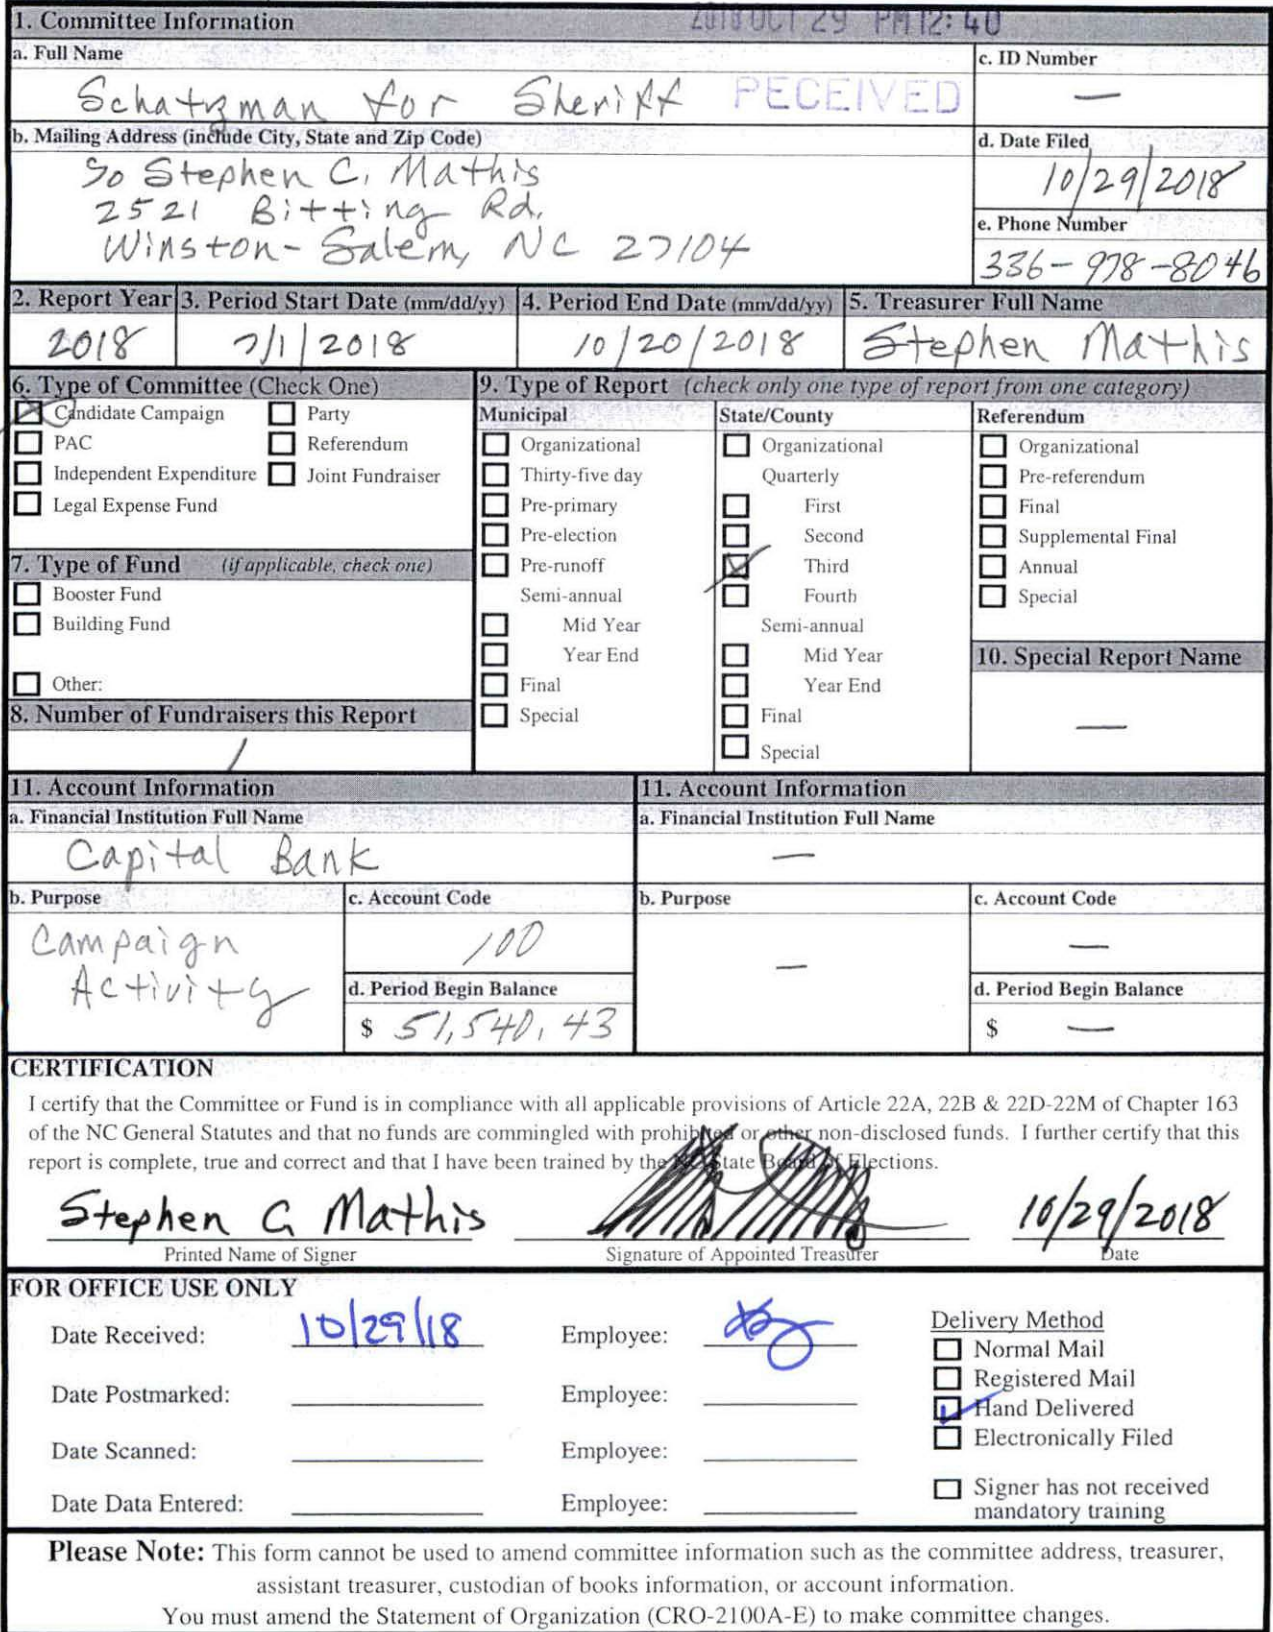 2018 OCT 29 PM 12: 40
1. Committee Information
a. Full Name
c. ID Number
Schatzman for Sheriff
RECEIVED
—
b. Mailing Address (include City, State and Zip Code)
d. Date Filed
c/o Stephen C. Mathis
10/29/2018
2521 Bitting Rd.
e. Phone Number
Winston-Salem, NC 27104
336-978-8046
2. Report Year 3. Period Start Date (mm/dd/yy) 4. Period End Date (mm/dd/yy) 5. Treasurer Full Name
2018 7/1/2018 10/20/2018 Stephen Mathis
6. Type of Committee (Check One)
Candidate Campaign Party
PAC Referendum
Independent Expenditure Joint Fundraiser
Legal Expense Fund
7. Type of Fund (if applicable, check one)
Booster Fund
Building Fund
Other:
8. Number of Fundraisers this Report
1
9. Type of Report (check only one type of report from one category)
Municipal
Organizational
Thirty-five day
Pre-primary
Pre-election
Pre-runoff
Semi-annual
Mid Year
Year End
Final
Special
State/County
Organizational
Quarterly
First
Second
Third
Fourth
Semi-annual
Mid Year
Year End
Final
Special
Referendum
Organizational
Pre-referendum
Final
Supplemental Final
Annual
Special
10. Special Report Name
—
11. Account Information
a. Financial Institution Full Name
Capital Bank
b. Purpose
Campaign
Activity
c. Account Code
100
d. Period Begin Balance
$ 51,540.43
11. Account Information
a. Financial Institution Full Name
—
b. Purpose
—
c. Account Code
—
d. Period Begin Balance
$ —
CERTIFICATION
I certify that the Committee or Fund is in compliance with all applicable provisions of Article 22A, 22B & 22D-22M of Chapter 163
of the NC General Statutes and that no funds are commingled with prohibited or other non-disclosed funds. I further certify that this
report is complete, true and correct and that I have been trained by the NC State Board of Elections.
Stephen C Mathis 10/29/2018
Printed Name of Signer Signature of Appointed Treasurer Date
FOR OFFICE USE ONLY
Date Received: 10/29/18 Employee:
Date Postmarked: Employee:
Date Scanned: Employee:
Date Data Entered: Employee:
Delivery Method
Normal Mail
Registered Mail
Hand Delivered
Electronically Filed
Signer has not received
mandatory training
Please Note: This form cannot be used to amend committee information such as the committee address, treasurer,
assistant treasurer, custodian of books information, or account information.
You must amend the Statement of Organization (CRO-2100A-E) to make committee changes.